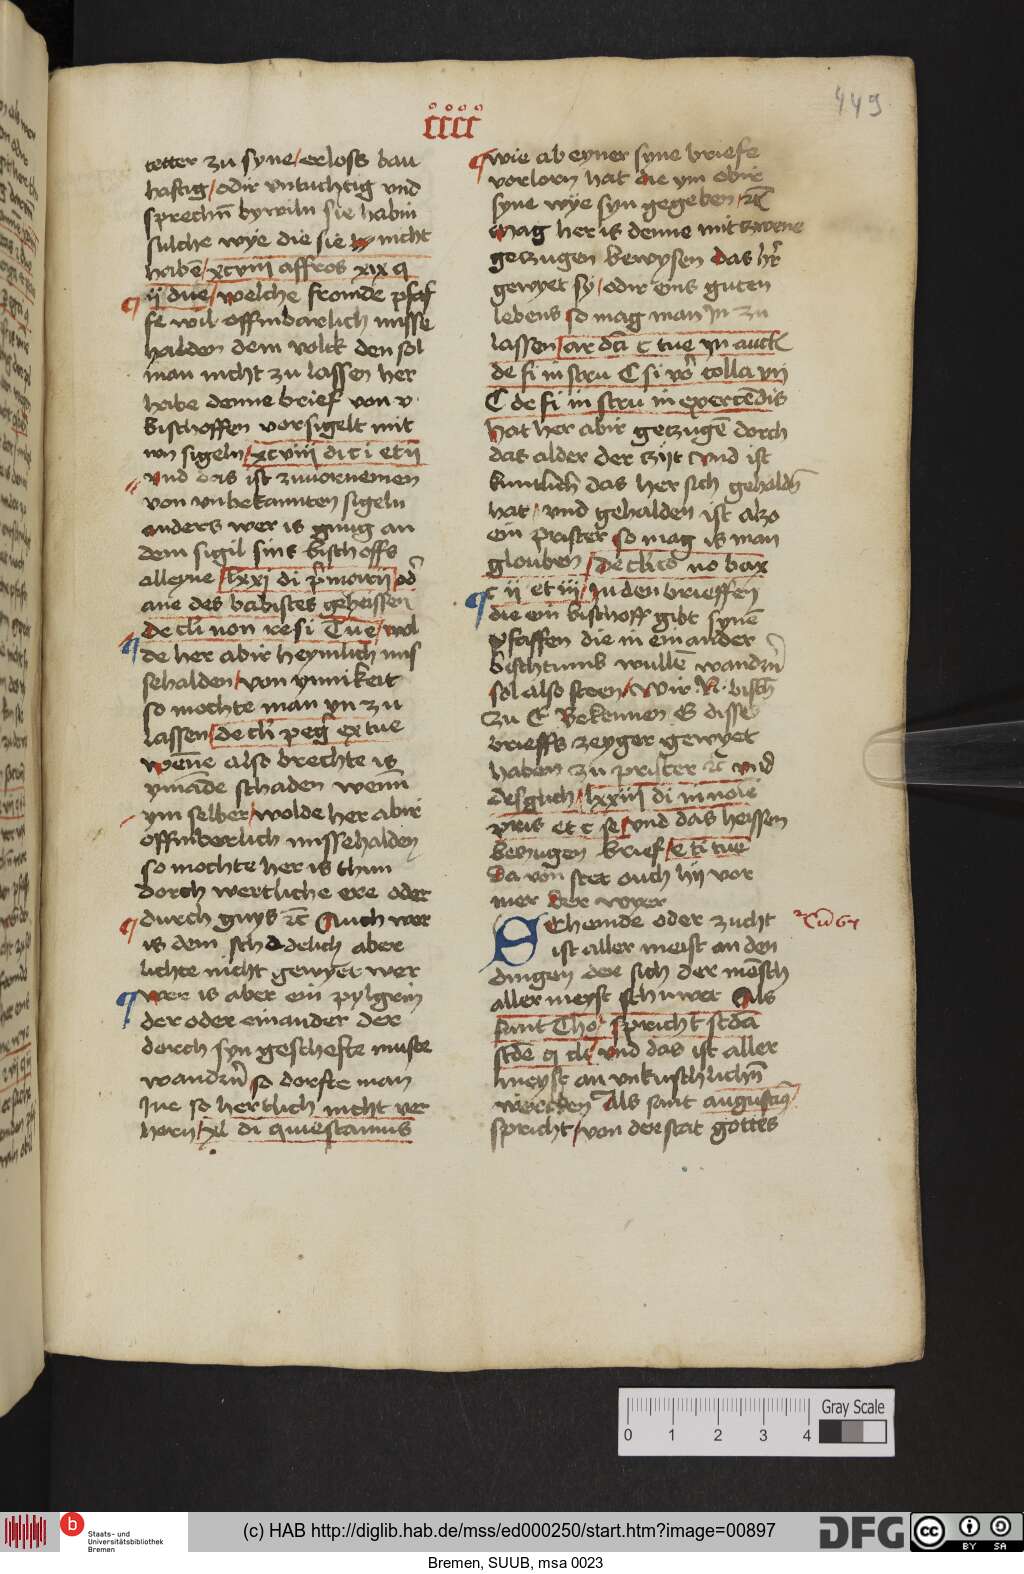 cccc
449
tetter zu syne / erloss bau
haftig / odir vntuchtig vnd
sprechn̄ bywiln sie habin
sulche wye die sie nicht
habē / xcviij affros xix q
ij due / welche fromde pfaf
fe wil offinbarlich misse
halden dem volck den sol
man nicht zu lassen her
habe denne brief von v·
bischoffen vorsigelt mit
irn sigeln / xcviij di c i et ij
vnd das ist zuuornemen
von vnbekannten sigeln
anders wer is gnug an
dem sigil sins bischoffs
alleyne / lxxj di p̄morij od̓
ane des babistes geheissen
de cli non resi Tue / wol
de her abir heymlich mis
sehalden / von ynnikeit
so mochte man yn zu
lassen / de cli pegͥ ex tue
wēne also brechte is
ymāde schaden wenn̄
ym selber / wolde her abir
offinberlich missehalden
so mochte her is thun
dorch wertliche ere oder
durch guys ⁊c̄ Auch wer
is dem schedelich aber
lichte nicht gewyet wer
wer is aber ein pylgrin
der oder einander der
dorch syn geschefte muste
wandrn̄ so dorfte man
Jne so hertlich nicht ver
horn / xl di quiestamus
wie ab eyner syne briefe
vorlorn hat die ym obir
syne wye syn gegeben / ⁊c̄
mag her is denne mit zwene
geczugen bewysen das h̓r
gewyet sy / odir eins guten
lebens so mag man yn zu
lassen / ar dcī c tue yn auctͥ
de fi instru C si vō colla vij
C de fi instru in exercēdis
hat her abir geczugē dorch
das alder der czijt vnd ist
kuntlich das her sich gehaldn̄
hat / vnd gehalden ist alzo
ein prister so mag is man
glouben / De clico no bax
c ij et iij / In den brieffen
die ein bischoff gibt synē
pfaffen die in ein ander
bischtumb wullē wandrn̄
sol also steen / Wir .N. bisch̄
zu E Bekennen G disse
brieffs zeyger gewyet
haben zu prister ⁊c̄ vnd
desglich / lxxiij di in noīe
p̄ris et c se / vnd das heissen
beczugen brief / e ti tue
da von stet ouch hij vor
mer der wyer
Schemde oder zucht
ist aller meist an den
dingen der sich der mēsch
aller meyst schemet Als
sant Tho spricht scdā
scde q clͥ vnd das ist aller
meyst an vnkuschlichn̄
wercken Als sant augustiꝰ
spricht / von der stat gottes
0 1 2 3 4
Gray Scale
b
Staats- und
Universitätsbibliothek
Bremen
(c) HAB http://diglib.hab.de/mss/ed000250/start.htm?image=00897
DFG
cc
BY SA
Bremen, SUUB, msa 0023